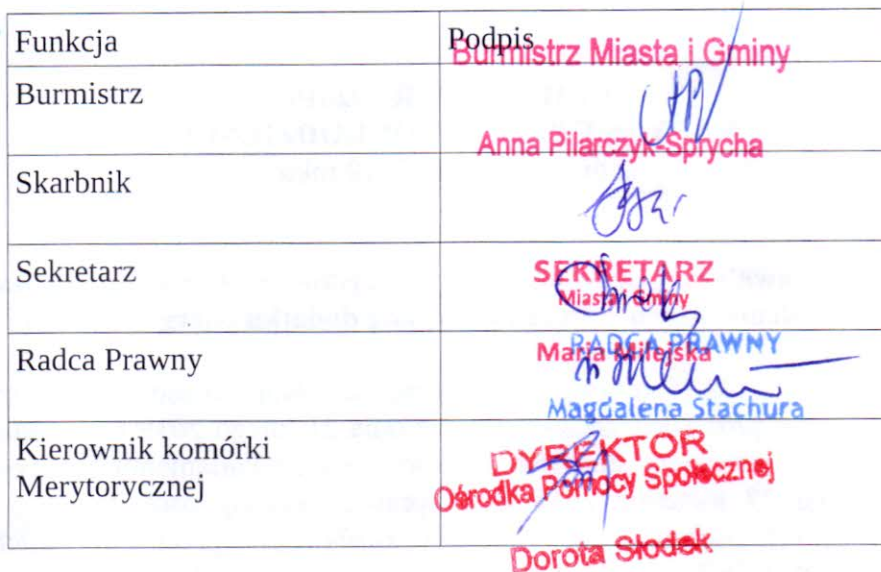 Funkcja Podpis
Burmistrz Miasta i Gminy
Burmistrz
Anna Pilarczyk-Sprycha
Skarbnik
Sekretarz SEKRETARZ
Miasta i Gminy
Maria Milejska
Radca Prawny RADCA PRAWNY
Magdalena Stachura
Kierownik komórki
Merytorycznej
DYREKTOR
Ośrodka Pomocy Społecznej
Dorota Słodek